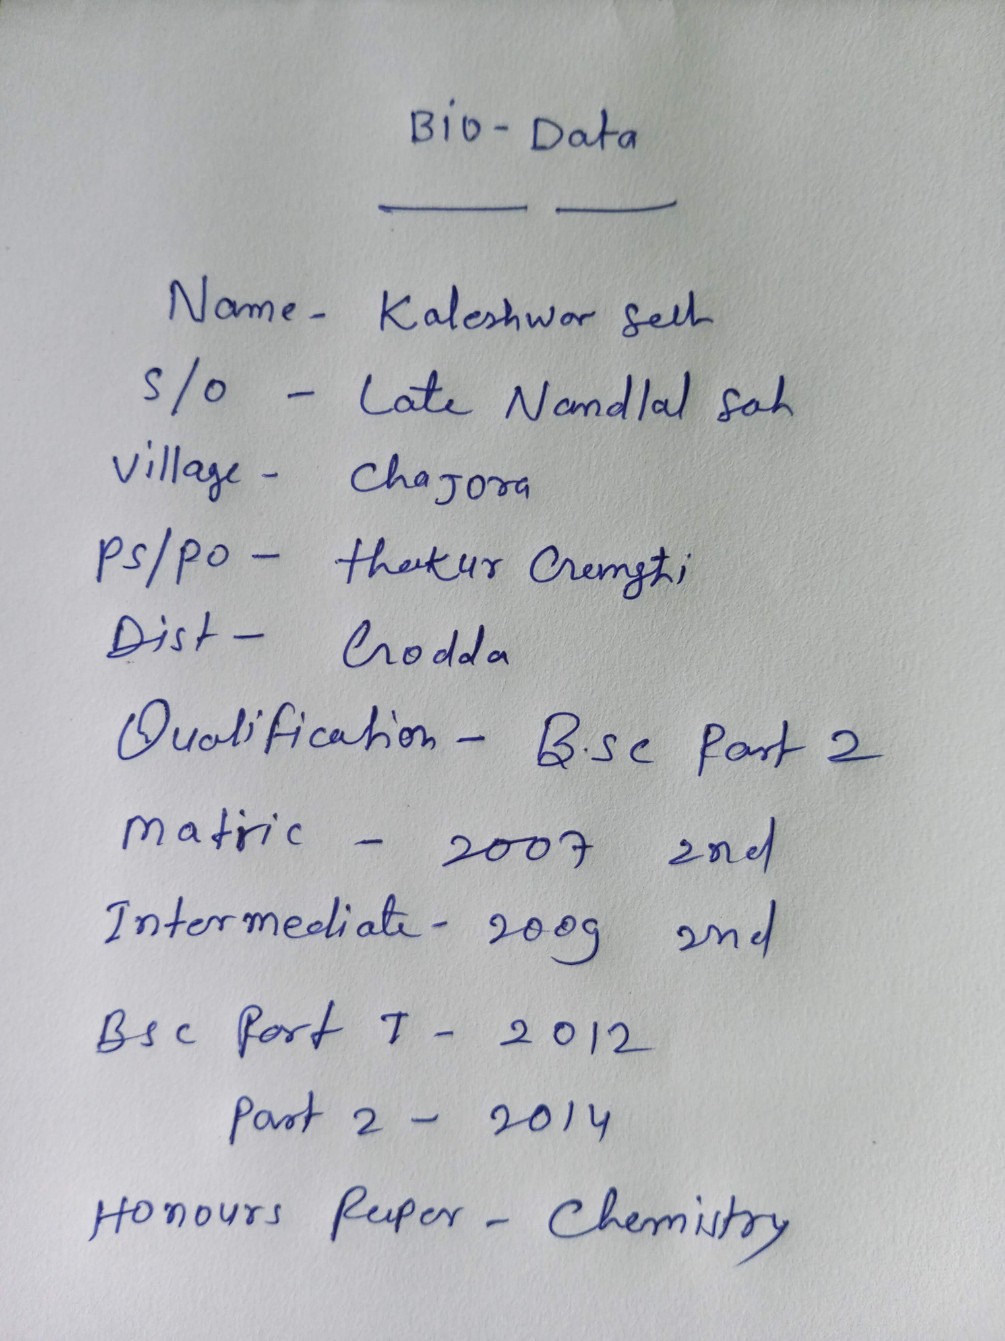 Bio-Data
Name - Kaleshwar Sah
S/o - Late Nandlal Sah
Village - Chajora
PS/PO - thakur Gangti
Dist - Godda
Qualification - B.sc Part 2
Matric - 2007 2nd
Intermediate - 2009 2nd
Bsc Part I - 2012
Part 2 - 2014
Honours Paper - Chemistry